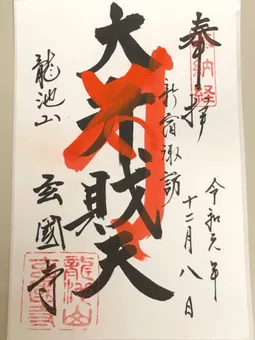 奉拝
奉納経
令和元年
十二月八日
新宿諏訪
大弁財天
龍池山
玄國寺